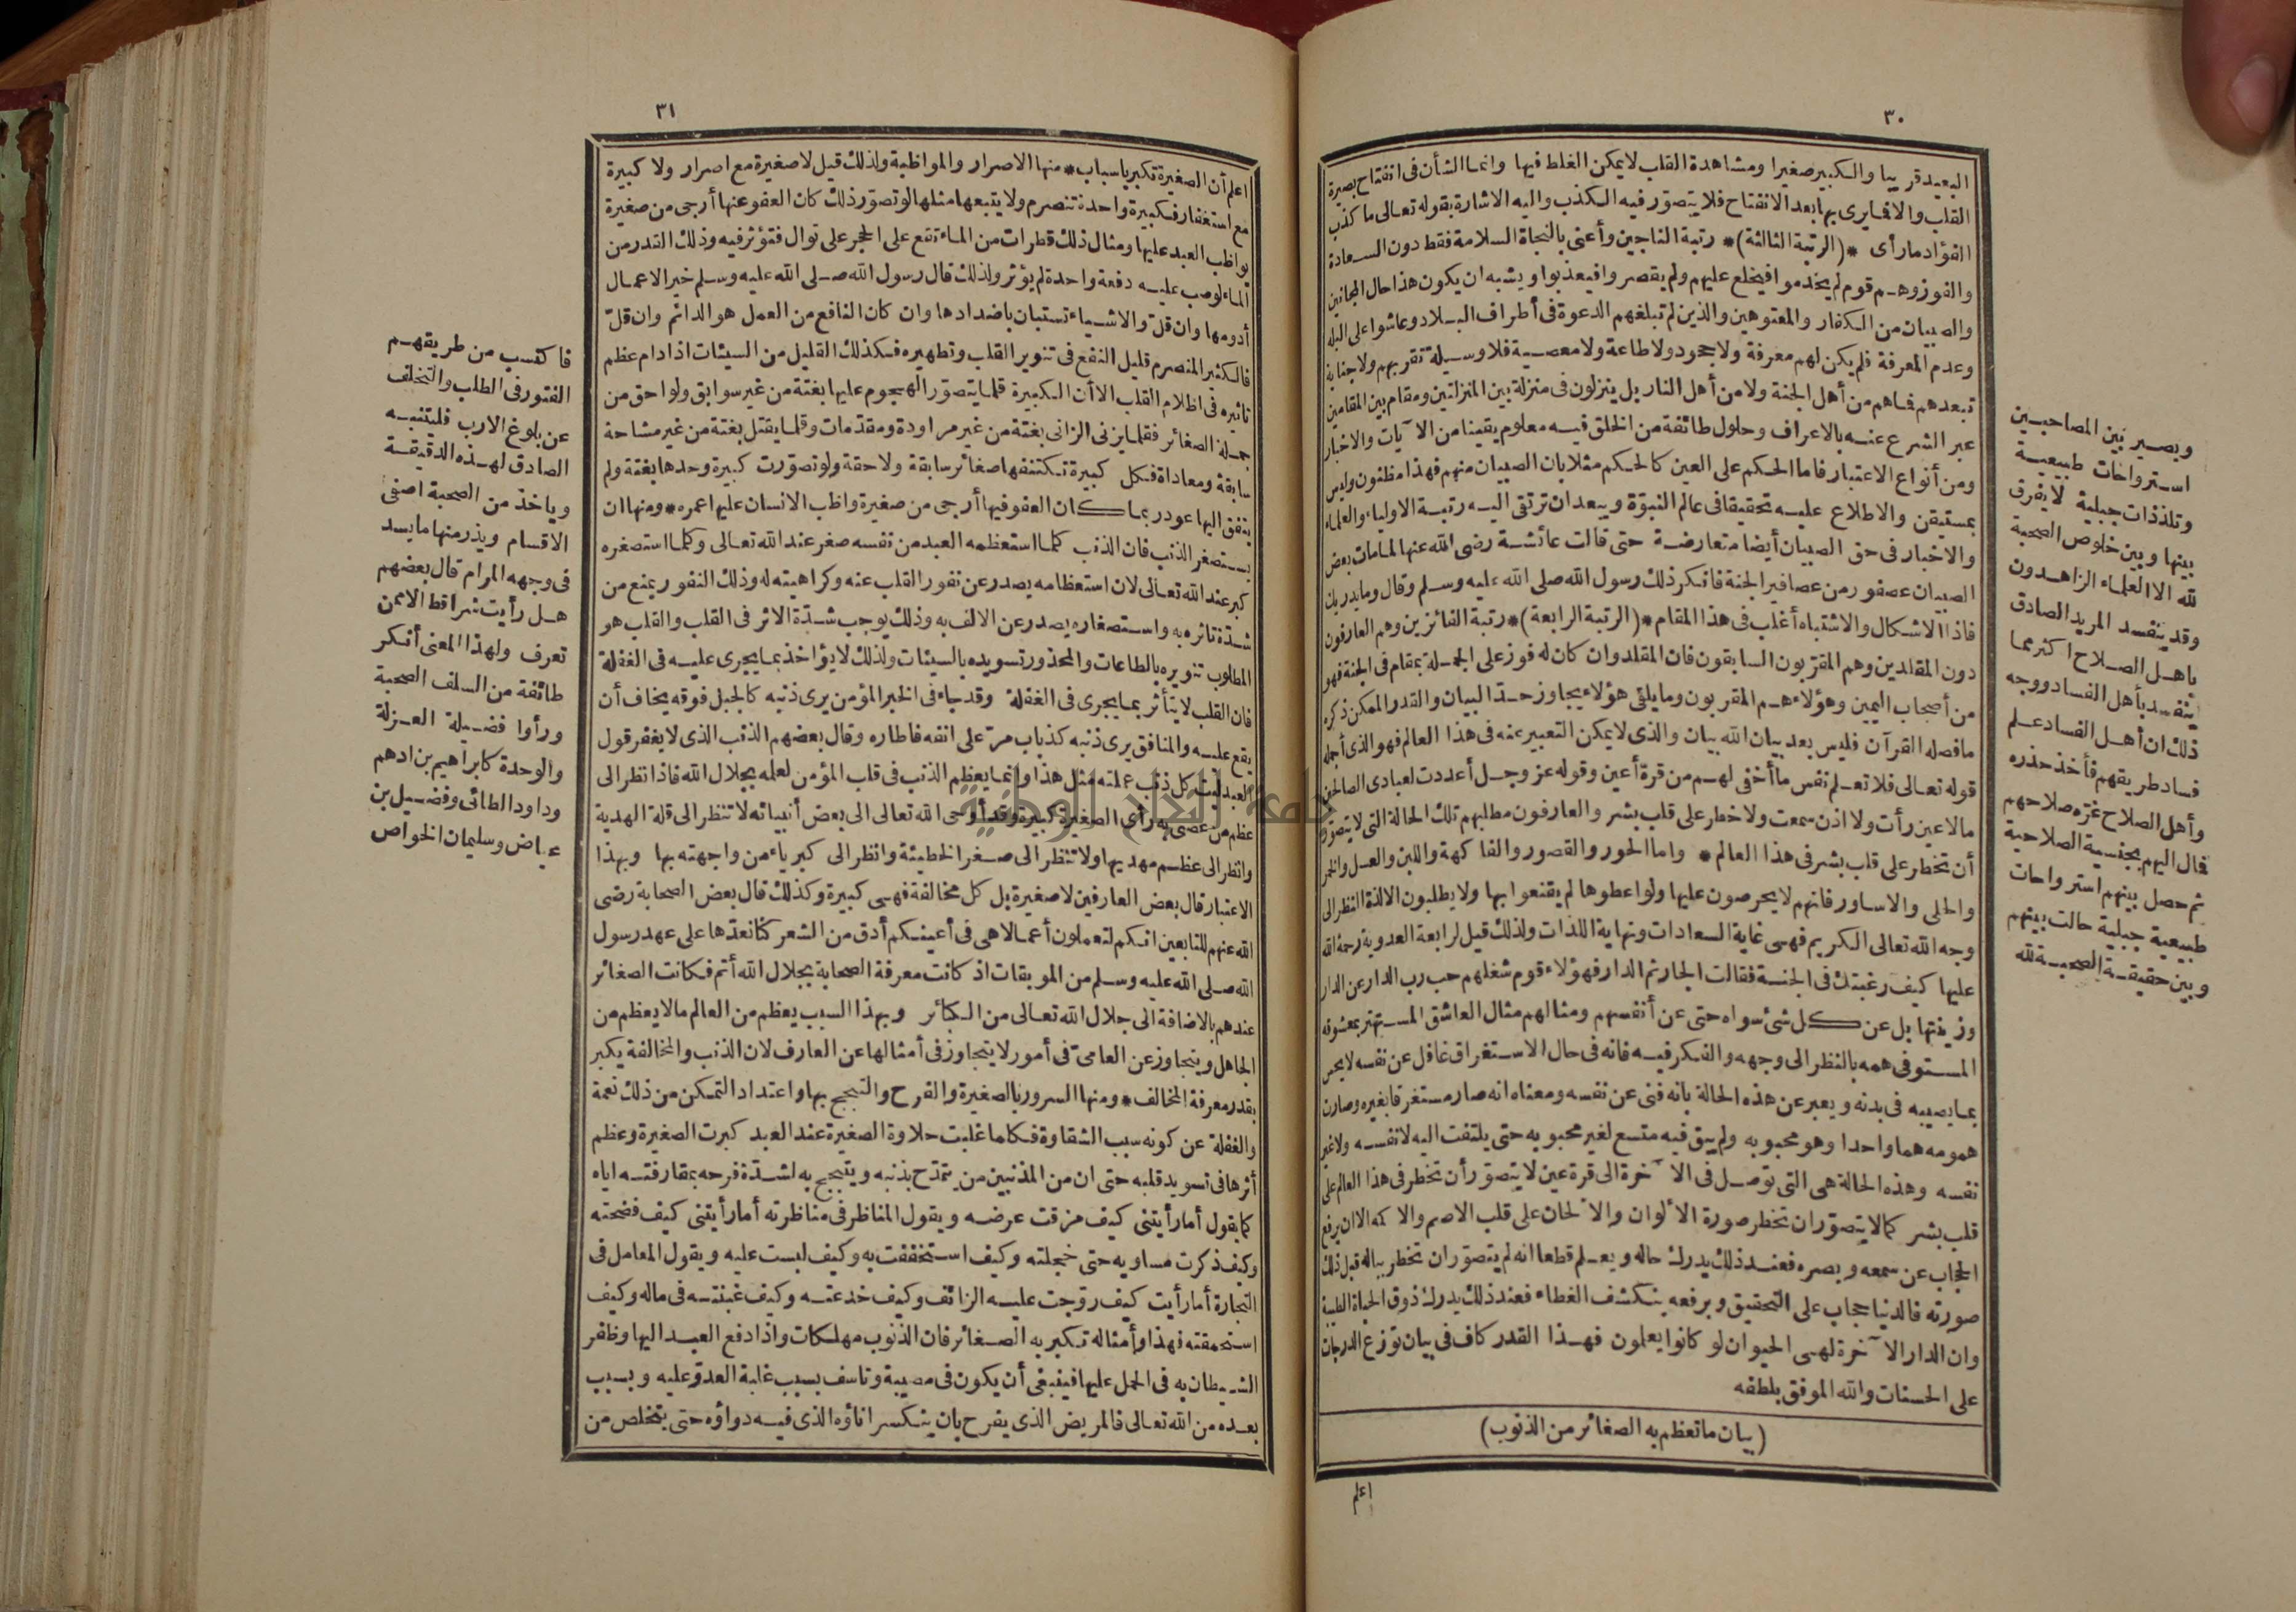 ٣٠
البعيد قريبا والكبير صغيرا ومشاهدة القلب لا يمكن الغلط فيها وانما الشأن فى انفتاح بصيرة
القلب والا فما يرى بها بعد الانفتاح فلا يتصوّر فيه الكذب واليه الاشارة بقوله تعالى ما كذب
الفؤاد ما رأى *(الرتبة الثالثة)* رتبة الناجين وأعنى بالنجاة السلامة فقط دون السعادة
والفوز وهم قوم لم يخدموا فيخلع عليهم ولم يقصروا فيعذبوا ويشبه ان يكون هذا حال المجانين
والصبيان من الكفار والمعتوهين والذين لم تبلغهم الدعوة فى أطراف البلاد وعاشوا على البله
وعدم المعرفة فلم يكن لهم معرفة ولا جحود ولا طاعة ولا معصية فلا وسيلة تقربهم ولا جناية
تبعدهم فماهم من أهل الجنة ولا من أهل النار بل ينزلون فى منزلة بين المنزلتين ومقام بين المقامين
عبر الشرع عنه بالاعراف وحلول طائفة من الخلق فيه معلوم يقينا من الآيات والاخبار
ومن أنواع الاعتبار فاما الحكم على العين كالحكم مثلا بان الصبيان منهم فهذا مظنون وليس
بمستيقن والاطلاع عليه تحقيقا فى عالم النبوّة ويبعد ان ترتقى اليه رتبة الاولياء والعلماء
والاخبار فى حق الصبيان أيضا متعارضة حتى قالت عائشة رضى الله عنها لما مات بعض
الصبيان عصفور من عصافير الجنة فانكر ذلك رسول الله صلى الله عليه وسلم وقال وما يدريك
فاذا الاشكال والاشتباه أغلب فى هذا المقام *(الرتبة الرابعة)* رتبة الفائزين وهم العارفون
دون المقلدين وهم المقرّبون السابقون فان المقلد وان كان له فوز على الجملة بمقام فى الجنة فهو
من أصحاب اليمين وهؤلاء هم المقربون وما يلقى هؤلاء يجاوز حدّ البيان والقدر الممكن ذكره
ما فصله القرآن فليس بعد بيان الله بيان والذى لا يمكن التعبير عنه فى هذا العالم فهو الذى أجمله
قوله تعالى فلا تعلم نفس ما أخفى لهم من قرة أعين وقوله عز وجل أعددت لعبادى الصالحين
مالا عين رأت ولا اذن سمعت ولا خطر على قلب بشر والعارفون مطلبهم تلك الحالة التى لا يتصوّر
أن تخطر على قلب بشر فى هذا العالم * واما الحور والقصور والفاكهة واللبن والعسل والخمر
والحلى والاساور فانهم لا يحرصون عليها ولو اعطوها لم يقنعوا بها ولا يطلبون الا لذة النظر الى
وجه الله تعالى الكريم فهى غاية السعادات ونهاية اللذات ولذلك قيل لرابعة العدوية رحمة الله
عليها كيف رغبتك فى الجنة فقالت الجار ثم الدار فهؤلاء قوم شغلهم حب رب الدار عن الدار
وزينتها بل عن كل شئ سواه حتى عن أنفسهم ومثالهم مثال العاشق المستهتر بمعشوقه
المستوفى همه بالنظر الى وجهه والفكر فيه فانه فى حال الاستغراق غافل عن نفسه لا يحس
بما يصيبه فى بدنه ويعبر عن هذه الحالة بانه فنى عن نفسه ومعناه انه صار مستغرقا بغيره وصارت
همومه هما واحدا وهو محبوبه ولم يبق فيه متسع لغير محبوبه حتى يلتفت اليه لا نفسه ولا غير
نفسه وهذه الحالة هى التى توصل فى الآخرة الى قرة عين لا يتصوّر أن تخطر فى هذا العالم على
قلب بشر كما لا يتصوّر ان تخطر صورة الألوان والألحان على قلب الاصم والاكمه الا ان يرفع
الحجاب عن سمعه وبصره فعند ذلك يدرك حاله ويعلم قطعا انه لم يتصوّر ان تخطر بباله قبل ذلك
صورته فالدنيا حجاب على التحقيق وبرفعه ينكشف الغطاء فعند ذلك يدرك ذوق الحياة الطيبة
وان الدار الآخرة لهى الحيوان لو كانوا يعلمون فهذا القدر كاف فى بيان توزع الدرجات
على الحسنات والله الموفق بلطفه
(بيان ما تعظم به الصغائر من الذنوب)
اعلم
ويصير بين المصاحبين
استرواحات طبيعية
وتلذذات جبلية لا يفرق
بينها وبين خلوص الصحبة
لله الا العلماء الزاهدون
وقد ينفسد المريد الصادق
باهل الصلاح اكثر مما
ينفسد بأهل الفساد ووجه
ذلك ان أهل الفساد علم
فساد طريقهم فأخذ حذره
وأهل الصلاح غره صلاحهم
فمال اليهم بجنسية الصلاحية
ثم حصل بينهم استرواحات
طبيعية جبلية حالت بينهم
وبين حقيقة الصحبة لله
٣١
اعلم أن الصغيرة تكبر باسباب * منها الاصرار والمواظبة ولذلك قيل لا صغيرة مع اصرار ولا كبيرة
مع استغفار فكبيرة واحدة تنصرم ولا يتبعها مثلها لو تصوّر ذلك كان العفو عنها أرجى من صغيرة
يواظب العبد عليها ومثال ذلك قطرات من الماء تقع على الحجر على توال فتؤثر فيه وذلك القدر من
الماء لو صب عليه دفعة واحدة لم يؤثر ولذلك قال رسول الله صلى الله عليه وسلم خير الاعمال
أدومها وان قلّ والاشياء تستبان باضدادها وان كان النافع من العمل هو الدائم وان قلّ
فالكثير المنصرم قليل النفع فى تنوير القلب وتطهيره فكذلك القليل من السيئات اذا دام عظم
تأثيره فى اظلام القلب الا أن الكبيرة قلما يتصوّر الهجوم عليها بغتة من غير سوابق ولواحق من
جملة الصغائر فقلما يزنى الزانى بغتة من غير مراودة ومقدّمات وقلما يقتل بغتة من غير مشاحة
سابقة ومعاداة فكل كبيرة تكتنفها صغائر سابقة ولاحقة ولو تصوّرت كبيرة وحدها بغتة ولم
يتفق اليها عود ربما كان العفو فيها أرجى من صغيرة واظب الانسان عليها عمره * ومنها ان
يستصغر الذنب فان الذنب كلما استعظمه العبد من نفسه صغر عند الله تعالى وكلما استصغره
كبر عند الله تعالى لان استعظامه يصدر عن نفور القلب عنه وكراهيته له وذلك النفور يمنع من
شدّة تاثره به واستصغاره يصدر عن الالف به وذلك يوجب شدّة الاثر فى القلب والقلب هو
المطلوب تنويره بالطاعات والمحذور تسويده بالسيئات ولذلك لا يؤاخذ بما يجرى عليه فى الغفلة
فان القلب لا يتأثر بما يجرى فى الغفلة وقد جاء فى الخبر المؤمن يرى ذنبه كالجبل فوقه يخاف أن
يقع عليه والمنافق يرى ذنبه كذباب مرّ على انفه فاطاره وقال بعضهم الذنب الذى لا يغفر قول
العبد ليت كل ذنب عملته مثل هذا وانما يعظم الذنب فى قلب المؤمن لعلمه بجلال الله فاذا نظر الى
عظم من عصى به رأى الصغيرة كبيرة وقد أوحى الله تعالى الى بعض أنبيائه لا تنظر الى قلة الهدية
وانظر الى عظم مهديها ولا تنظر الى صغر الخطيئة وانظر الى كبرياء من واجهته بها وبهذا
الاعتبار قال بعض العارفين لا صغيرة بل كل مخالفة فهى كبيرة وكذلك قال بعض الصحابة رضى
الله عنهم للتابعين انكم لتعملون أعمالا هى فى أعينكم أدق من الشعر كنا نعدّها على عهد رسول
الله صلى الله عليه وسلم من الموبقات اذ كانت معرفة الصحابة بجلال الله أتم فكانت الصغائر
عندهم بالاضافة الى جلال الله تعالى من الكبائر وبهذا السبب يعظم من العالم مالا يعظم من
الجاهل ويتجاوز عن العامىّ فى أمور لا يتجاوز فى أمثالها عن العارف لان الذنب والمخالفة يكبر
بقدر معرفة المخالف * ومنها السرور بالصغيرة والفرح والتبجح بها واعتداد التمكن من ذلك نعمة
والغفلة عن كونه سبب الشقاوة فكلما غلبت حلاوة الصغيرة عند العبد كبرت الصغيرة وعظم
أثرها فى تسويد قلبه حتى ان من المذنبين من يتمدّح بذنبه ويتبجح به لشدّة فرحه بمقارفته اياه
كما يقول أما رأيتنى كيف مزقت عرضه ويقول المناظر فى مناظرته أما رأيتنى كيف فضحته
وكيف ذكرت مساويه حتى خجلته وكيف استخففت به وكيف لبست عليه ويقول المعامل فى
التجارة أما رأيت كيف روّجت عليه الزائف وكيف خدعته وكيف غبنته فى ماله وكيف
استحمقته فهذا وأمثاله تكبر به الصغائر فان الذنوب مهلكات واذا دفع العبد اليها وظفر
الشيطان به فى الحمل عليها فينبغى أن يكون فى مصيبة وتاسف بسبب غلبة العدوّ عليه وبسبب
بعده من الله تعالى فالمريض الذى يفرح بان ينكسر اناؤه الذى فيه دواؤه حتى يتخلص من
فاكتسب من طريقهم
الفتور فى الطلب والتخلف
عن بلوغ الارب فليتنبه
الصادق لهذه الدقيقة
وياخذ من الصحبة اصفى
الاقسام ويذر منها ما يسد
فى وجهه المرام قال بعضهم
هل رأيت شرا قط الا ممن
تعرف ولهذا المعنى أنكر
طائفة من السلف الصحبة
ورأوا فضيلة العزلة
والوحدة كابراهيم بن ادهم
وداود الطائى وفضيل بن
عياض وسليمان الخواص
جامعة النجاح الوطنية